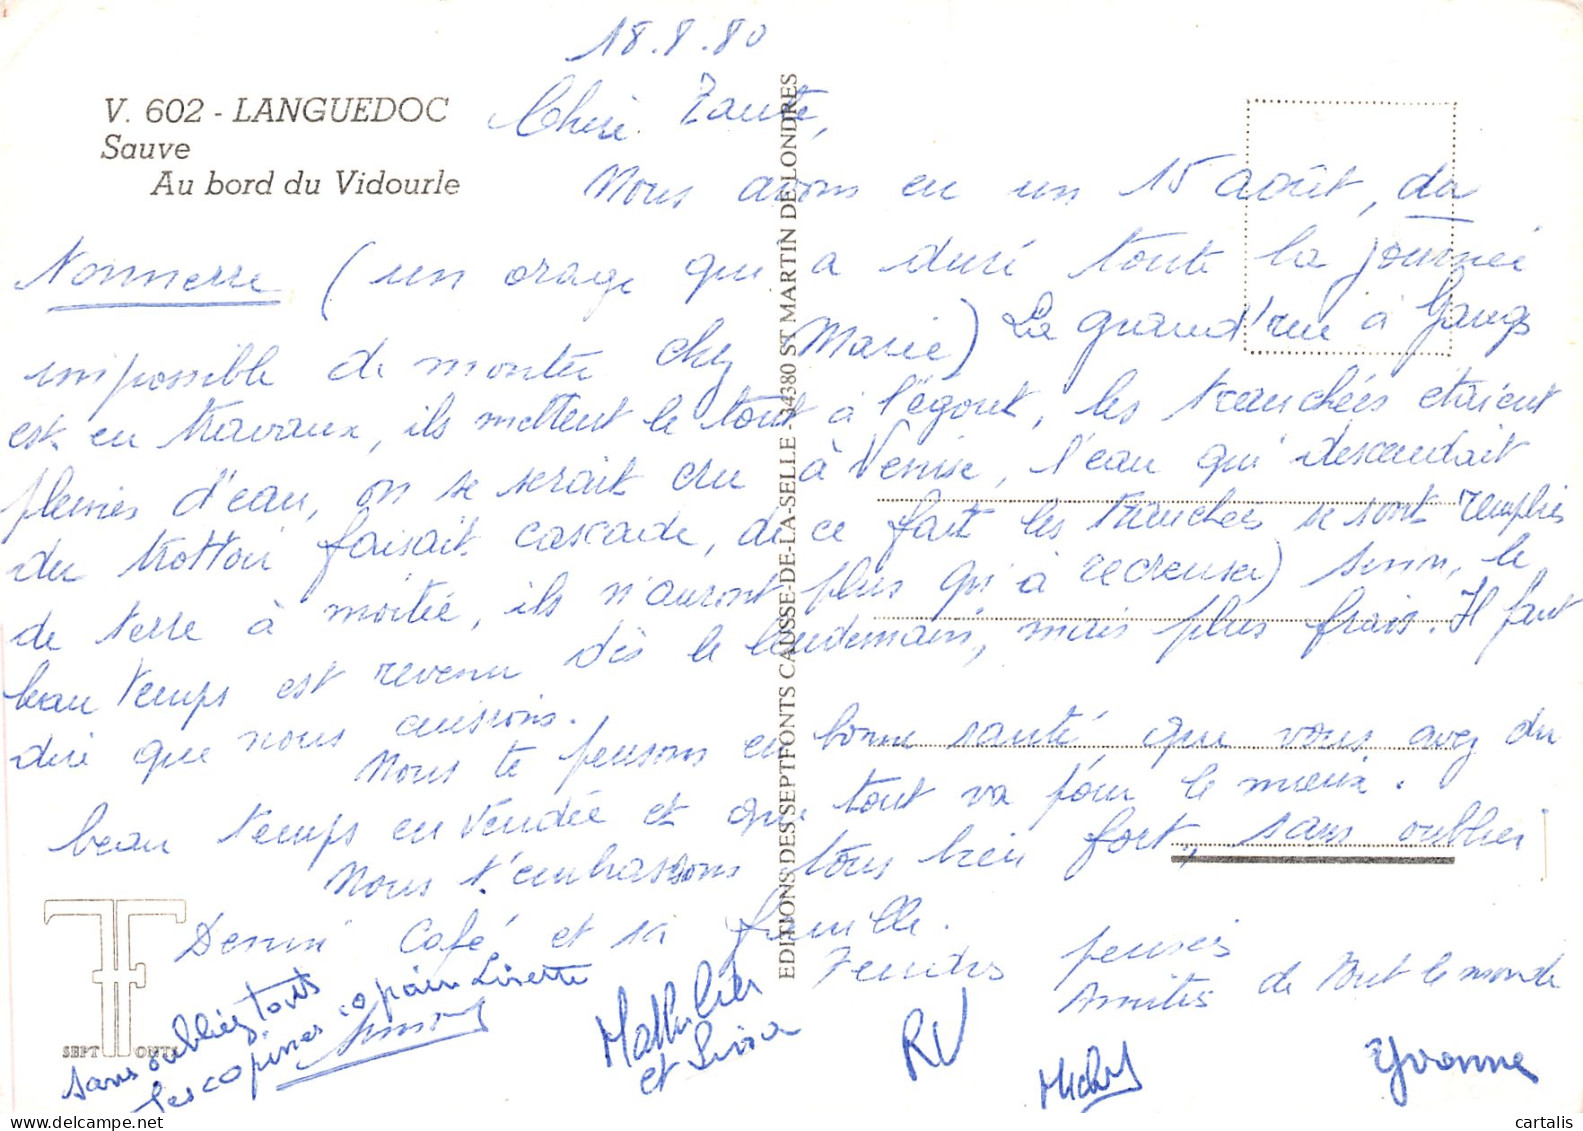 V. 602 - LANGUEDOC
Sauve
Au bord du Vidourle
18.8.80
Tante,
Nous avons eu un 15 août, du
(un orage qui a duré toute la journée
impossible de monter chez Marie) La grand'rue à Ganges
est en travaux, ils mettent le tout à l'égout, les tranchées étaient
pleines d'eau, on se serait cru à Venise, l'eau qui descendait
du trottoir faisait cascade, de ce fait les tranchées se sont remplies
de terre à moitié, ils n'auront plus qu'à recreuser) sinon, le
beau temps est revenu dès le lendemain, mais plus frais. Il faut
dire que nous cuisions.
Nous te pensons en bonne santé que vous avez du
beau temps en Vendée et que tout va pour le mieux.
Nous t'embrassons tous bien fort, sans oublier
Café et sa famille.
Tendres pensées
Amitiés de tout le monde
sans oublier tous
les copines copain Lisette
Simone
et
RV
Michel
Yvonne
SEPT FONTS
EDITIONS DES SEPTFONTS CAUSSE-DE-LA-SELLE - 34380 ST MARTIN DE LONDRES
cartalis